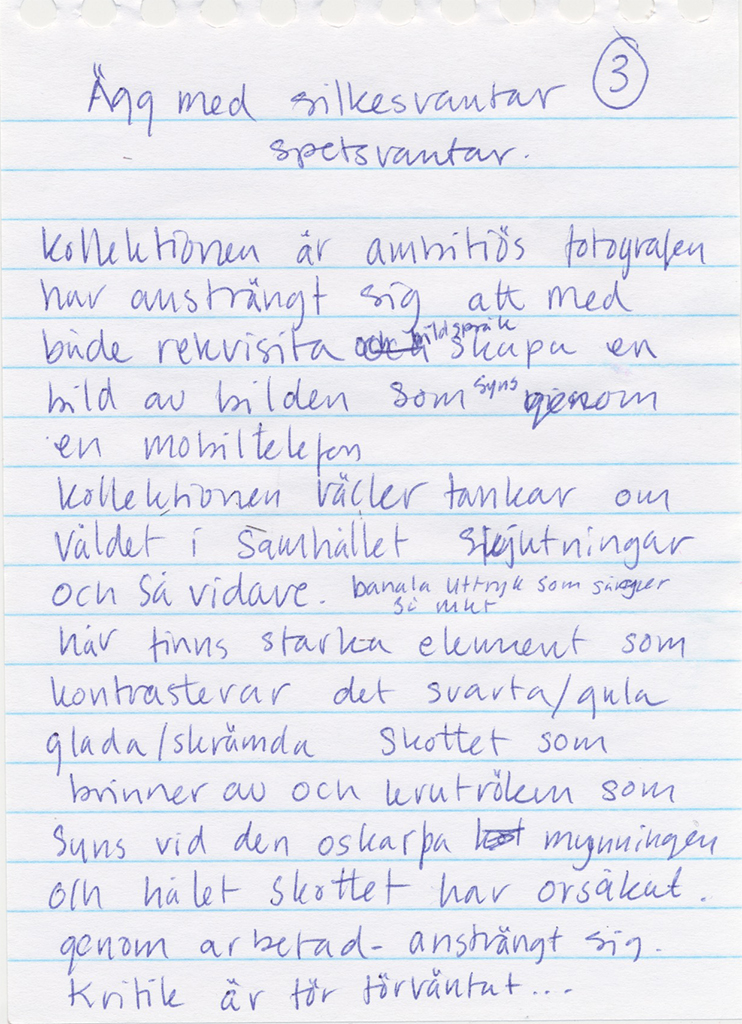 Ägg med silkesvantar ③
spetsvantar.
kollektionen är ambitiös fotografen
har ansträngt sig att med
både rekvisita och bildspråk skapa en
bild av bilden som syns genom
en mobiltelefon
kollektionen väcker tankar om
våldet i samhället skjutningar
och så vidare. banala uttryk som säger
så mkt
här finns starka element som
kontrasterar det svarta/gula
glada/skrämda skottet som
brinner av och krutröken som
syns vid den oskarpa mynningen
och hålet skottet har orsakat.
genom arbetad - ansträngt sig.
Kritik är för förväntat....